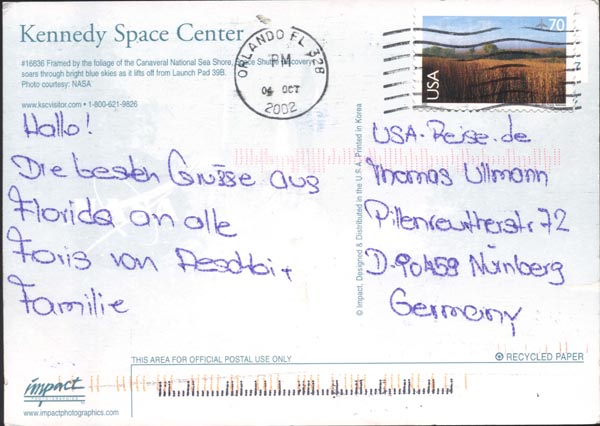 Kennedy Space Center
#16636 Framed by the foliage of the Canaveral National Sea Shore, Space Shuttle Discovery
soars through bright blue skies as it lifts off from Launch Pad 39B.
Photo courtesy: NASA
www.kscvisitor.com • 1-800-621-9826
ORLANDO FL 328
PM
04 OCT
2002
70
USA
Hallo!
Die besten Grüsse aus
Florida an alle
Foris von
Familie
© Impact, Designed & Distributed in the U.S.A. Printed in Korea
USA-Reise.de
Thomas Ullmann
Pillenreutherstr 72
D-90459 Nürnberg
Germany
THIS AREA FOR OFFICIAL POSTAL USE ONLY
RECYCLED PAPER
impact
PHOTOGRAPHICS
www.impactphotographics.com